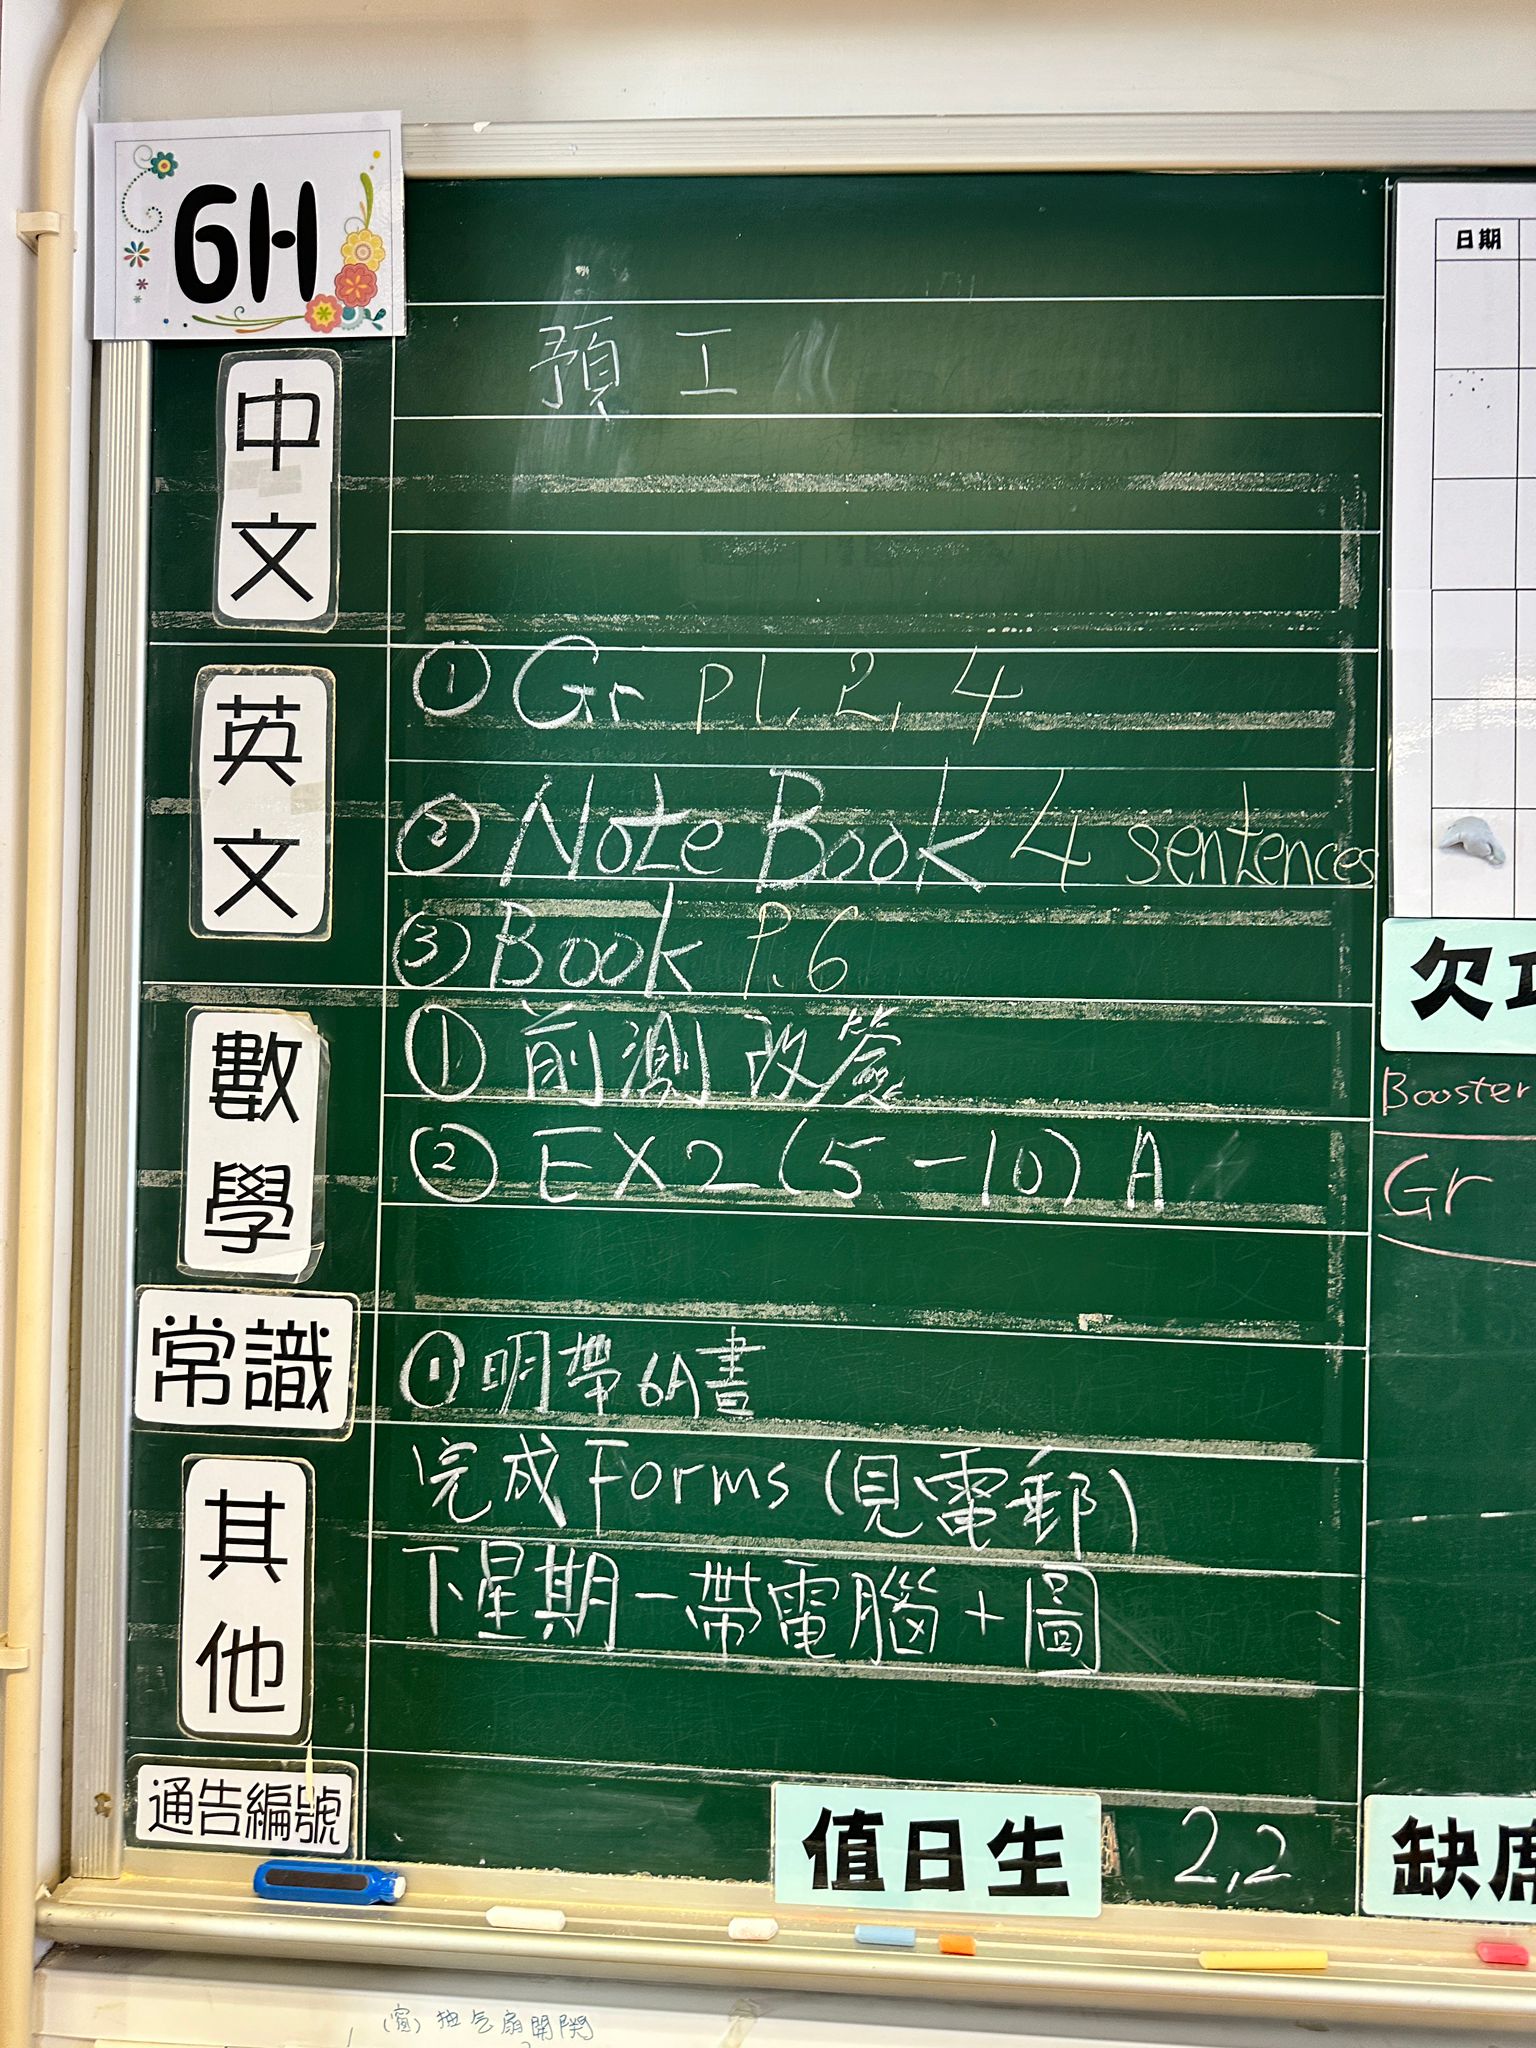 6H
日期
中文
預 工
英文
① Gr p1, 2, 4
② NoteBook 4 sentences
③ Book P.6
欠
數學
① 前測改簽
② EX2 (5-10) A
Booster
Gr
常識
① 明帶6A書
其他
完成Forms (見電郵)
下星期一帶電腦+圖
通告編號
值日生
2,2
缺席
(窗) 抽气扇開關